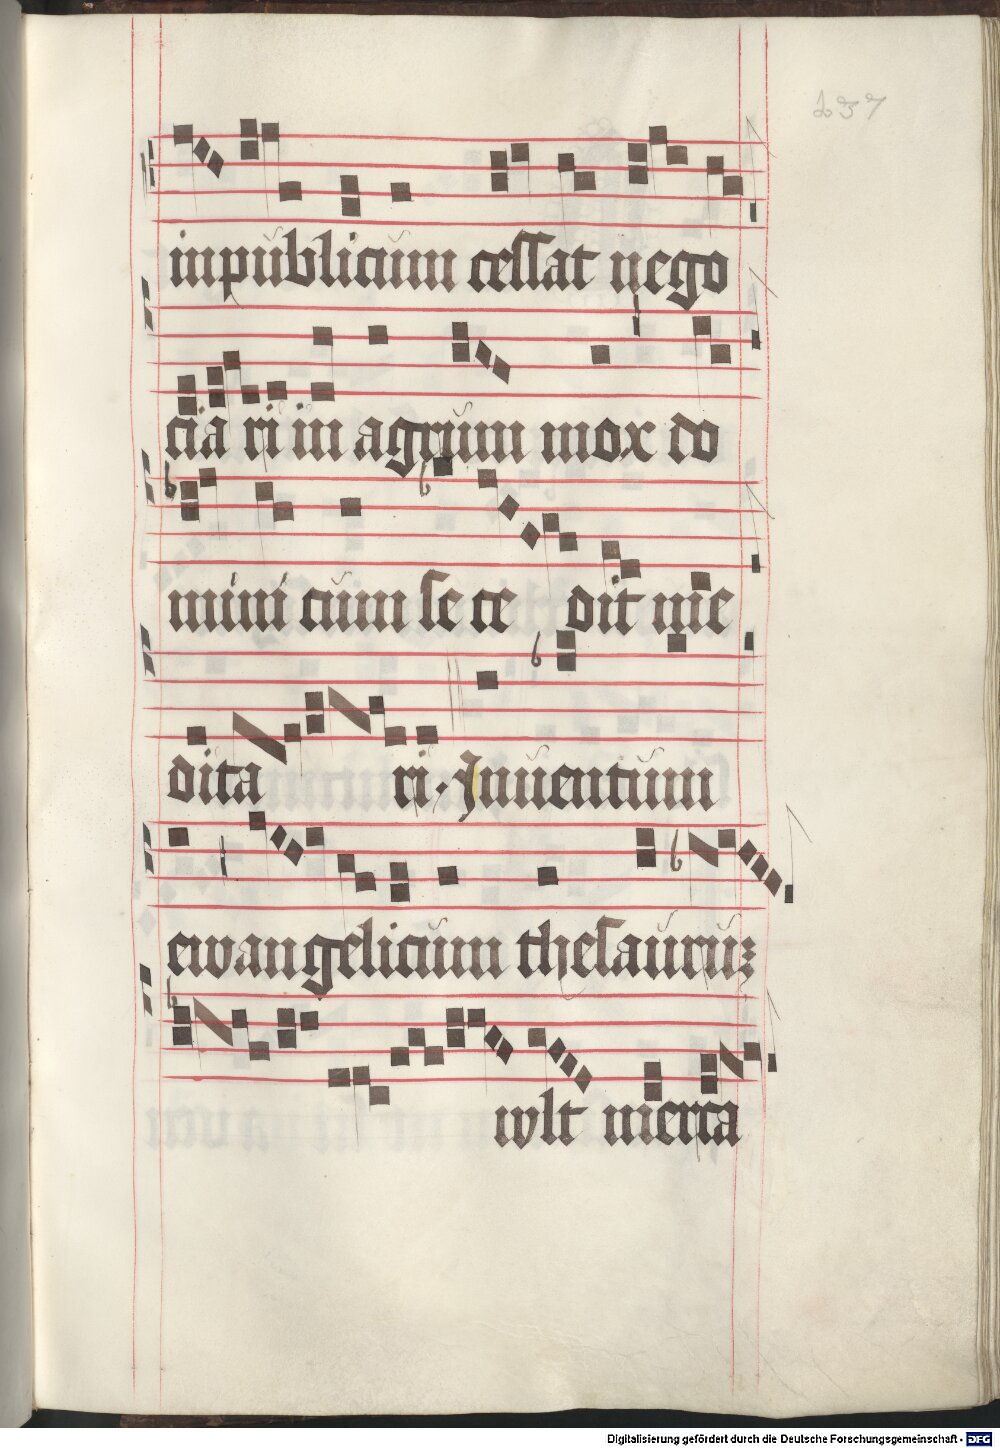 237
inpublicum cessat nego
cia ri in agrum mox do
mini cum se ce dit me
dita ri. Inuentum
ewangelicum thesauruz
wlt merca
Digitalisierung gefördert durch die Deutsche Forschungsgemeinschaft - DFG